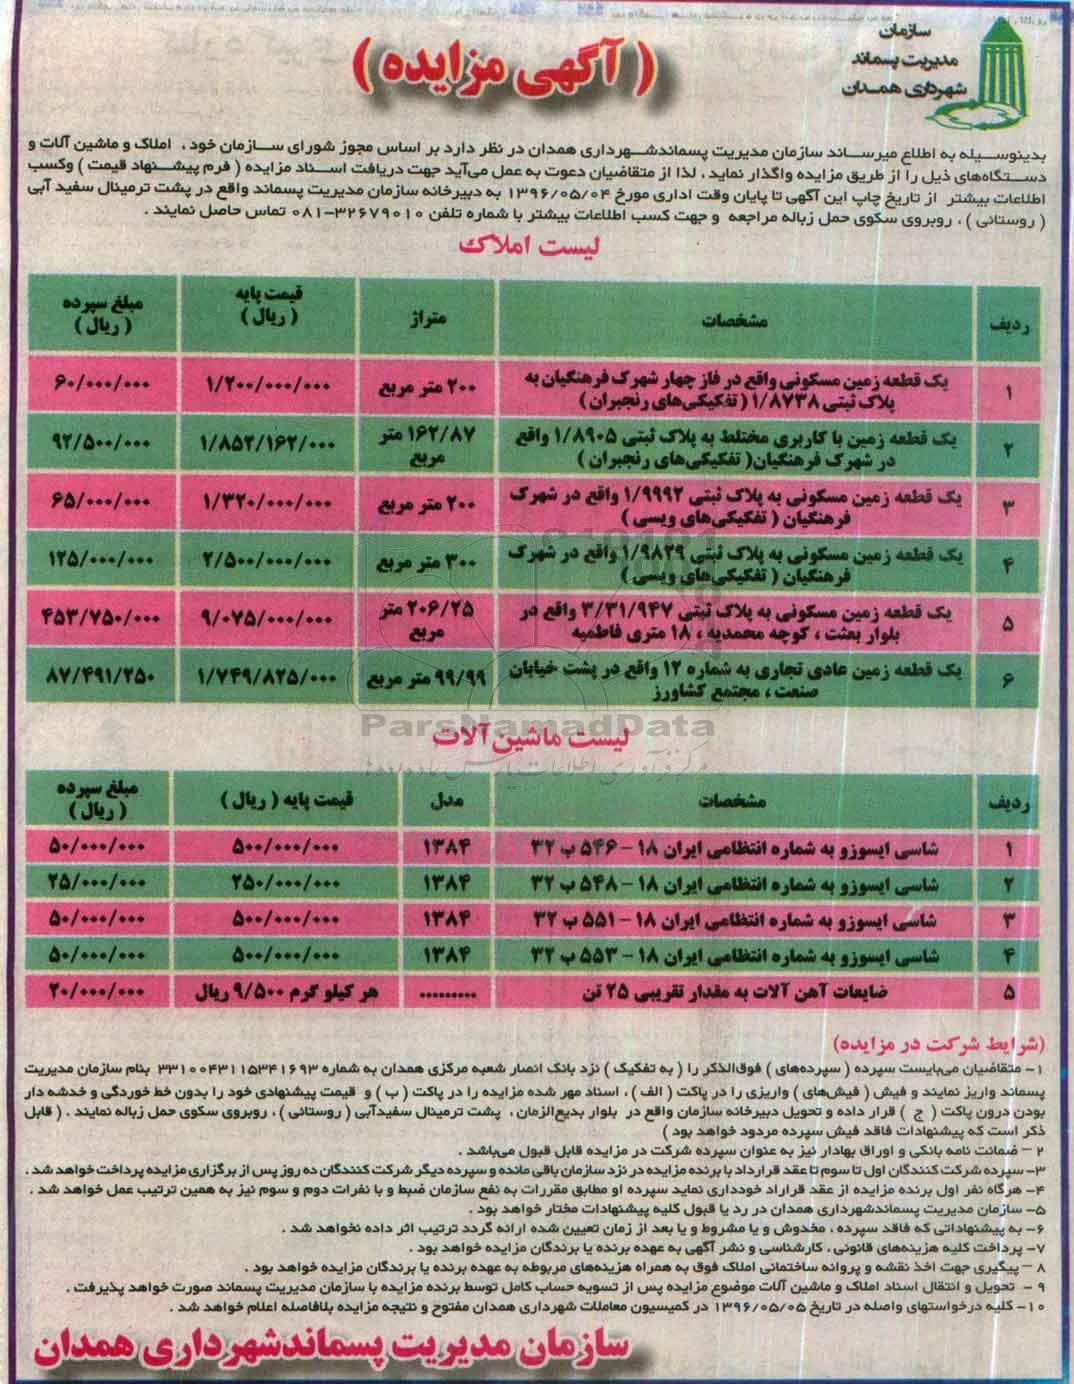 سازمان
مدیریت پسماند
شهرداری همدان
( آگهی مزایده )
بدینوسیله به اطلاع میرساند سازمان مدیریت پسماندشهرداری همدان در نظر دارد بر اساس مجوز شورای سازمان خود ، املاک و ماشین آلات و
دستگاه‌های ذیل را از طریق مزایده واگذار نماید ، لذا از متقاضیان دعوت به عمل می‌آید جهت دریافت اسناد مزایده ( فرم پیشنهاد قیمت ) وکسب
اطلاعات بیشتر از تاریخ چاپ این آگهی تا پایان وقت اداری مورخ ۱۳۹۶/۰۵/۰۴ به دبیرخانه سازمان مدیریت پسماند واقع در پشت ترمینال سفید آبی
( روستائی ) ، روبروی سکوی حمل زباله مراجعه و جهت کسب اطلاعات بیشتر با شماره تلفن ۳۲۶۷۹۰۱۰-۰۸۱ تماس حاصل نمایند .
لیست املاک
ردیف مشخصات متراژ قیمت پایه ( ریال ) مبلغ سپرده ( ریال )
۱ یک قطعه زمین مسکونی واقع در فاز چهار شهرک فرهنگیان به پلاک ثبتی ۱/۸۷۳۸ ( تفکیکی‌های رنجبران ) ۲۰۰ متر مربع ۱/۲۰۰/۰۰۰/۰۰۰ ۶۰/۰۰۰/۰۰۰
۲ یک قطعه زمین با کاربری مختلط به پلاک ثبتی ۱/۸۹۰۵ واقع در شهرک فرهنگیان( تفکیکی‌های رنجبران ) ۱۶۲/۸۷ متر مربع ۱/۸۵۲/۱۶۲/۰۰۰ ۹۲/۵۰۰/۰۰۰
۳ یک قطعه زمین مسکونی به پلاک ثبتی ۱/۹۹۹۲ واقع در شهرک فرهنگیان ( تفکیکی‌های ویسی ) ۲۰۰ متر مربع ۱/۳۲۰/۰۰۰/۰۰۰ ۶۵/۰۰۰/۰۰۰
۴ یک قطعه زمین مسکونی به پلاک ثبتی ۱/۹۸۲۹ واقع در شهرک فرهنگیان ( تفکیکی‌های ویسی ) ۳۰۰ متر مربع ۲/۵۰۰/۰۰۰/۰۰۰ ۱۲۵/۰۰۰/۰۰۰
۵ یک قطعه زمین مسکونی به پلاک ثبتی ۳/۳۱/۹۴۷ واقع در بلوار بعثت ، کوچه محمدیه ، ۱۸ متری فاطمیه ۲۰۶/۲۵ متر مربع ۹/۰۷۵/۰۰۰/۰۰۰ ۴۵۳/۷۵۰/۰۰۰
۶ یک قطعه زمین عادی تجاری به شماره ۱۲ واقع در پشت خیابان صنعت ، مجتمع کشاورز ۹۹/۹۹ متر مربع ۱/۷۴۹/۸۲۵/۰۰۰ ۸۷/۴۹۱/۲۵۰
ParsNamadData
لیست ماشین آلات
مرکز فرآوری اطلاعات پارس نماد داده‌ها
ردیف مشخصات مدل قیمت پایه ( ریال ) مبلغ سپرده ( ریال )
۱ شاسی ایسوزو به شماره انتظامی ایران ۱۸ - ۵۴۶ ب ۳۲ ۱۳۸۴ ۵۰۰/۰۰۰/۰۰۰ ۵۰/۰۰۰/۰۰۰
۲ شاسی ایسوزو به شماره انتظامی ایران ۱۸ - ۵۴۸ ب ۳۲ ۱۳۸۴ ۲۵۰/۰۰۰/۰۰۰ ۲۵/۰۰۰/۰۰۰
۳ شاسی ایسوزو به شماره انتظامی ایران ۱۸ - ۵۵۱ ب ۳۲ ۱۳۸۴ ۵۰۰/۰۰۰/۰۰۰ ۵۰/۰۰۰/۰۰۰
۴ شاسی ایسوزو به شماره انتظامی ایران ۱۸ - ۵۵۳ ب ۳۲ ۱۳۸۴ ۵۰۰/۰۰۰/۰۰۰ ۵۰/۰۰۰/۰۰۰
۵ ضایعات آهن آلات به مقدار تقریبی ۲۵ تن ......... هر کیلو گرم ۹/۵۰۰ ریال ۲۰/۰۰۰/۰۰۰
(شرایط شرکت در مزایده)
۱- متقاضیان می‌بایست سپرده ( سپرده‌های ) فوق‌الذکر را ( به تفکیک ) نزد بانک انصار شعبه مرکزی همدان به شماره ۳۳۱۰۰۴۳۱۱۵۳۴۱۶۹۳ بنام سازمان مدیریت
پسماند واریز نمایند و فیش ( فیش‌های ) واریزی را در پاکت ( الف ) ، اسناد مهر شده مزایده را در پاکت ( ب ) و قیمت پیشنهادی خود را بدون خط خوردگی و خدشه دار
بودن درون پاکت ( ج ) قرار داده و تحویل دبیرخانه سازمان واقع در بلوار بدیع‌الزمان ، پشت ترمینال سفیدآبی ( روستائی ) ، روبروی سکوی حمل زباله نمایند . ( قابل
ذکر است که پیشنهادات فاقد فیش سپرده مردود خواهد بود )
۲ - ضمانت نامه بانکی و اوراق بهادار نیز به عنوان سپرده شرکت در مزایده قابل قبول می‌باشد .
۳- سپرده شرکت کنندگان اول تا سوم تا عقد قرارداد با برنده مزایده در نزد سازمان باقی مانده و سپرده دیگر شرکت کنندگان ده روز پس از برگزاری مزایده پرداخت خواهد شد .
۴- هرگاه نفر اول برنده مزایده از عقد قراراد خودداری نماید سپرده او مطابق مقررات به نفع سازمان ضبط و با نفرات دوم و سوم نیز به همین ترتیب عمل خواهد شد .
۵- سازمان مدیریت پسماندشهرداری همدان در رد یا قبول کلیه پیشنهادات مختار خواهد بود .
۶- به پیشنهاداتی که فاقد سپرده ، مخدوش و یا مشروط و یا بعد از زمان تعیین شده ارائه گردد ترتیب اثر داده نخواهد شد .
۷- پرداخت کلیه هزینه‌های قانونی ، کارشناسی و نشر آگهی به عهده برنده یا برندگان مزایده خواهد بود .
۸ - پیگیری جهت اخذ نقشه و پروانه ساختمانی املاک فوق به همراه هزینه‌های مربوطه به عهده برنده یا برندگان مزایده خواهد بود .
۹ - تحویل و انتقال اسناد املاک و ماشین آلات موضوع مزایده پس از تسویه حساب کامل توسط برنده مزایده با سازمان مدیریت پسماند صورت خواهد پذیرفت .
۱۰- کلیه درخواستهای واصله در تاریخ ۱۳۹۶/۰۵/۰۵ در کمیسیون معاملات شهرداری همدان مفتوح و نتیجه مزایده بلافاصله اعلام خواهد شد .
سازمان مدیریت پسماندشهرداری همدان